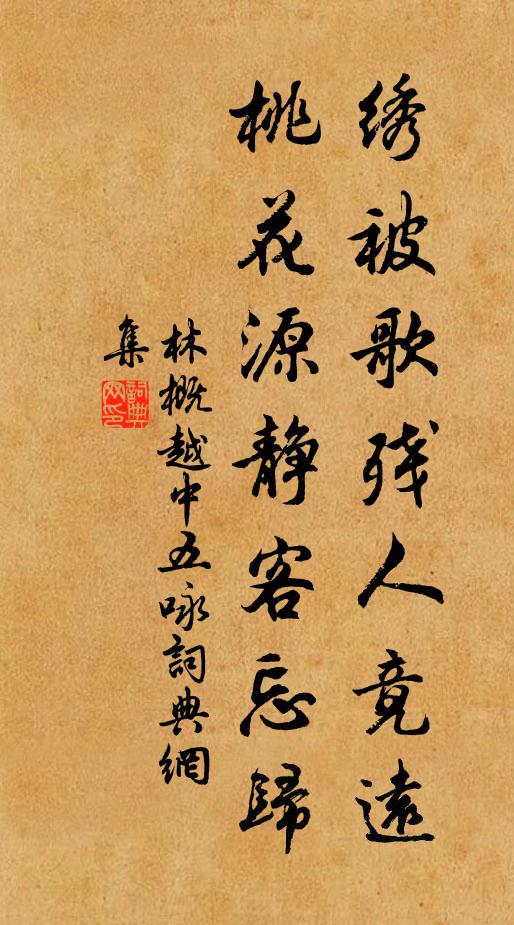 绣被歌残人竟远
桃花源静客忘歸
林概越中五咏詞典網
集
詞典網印